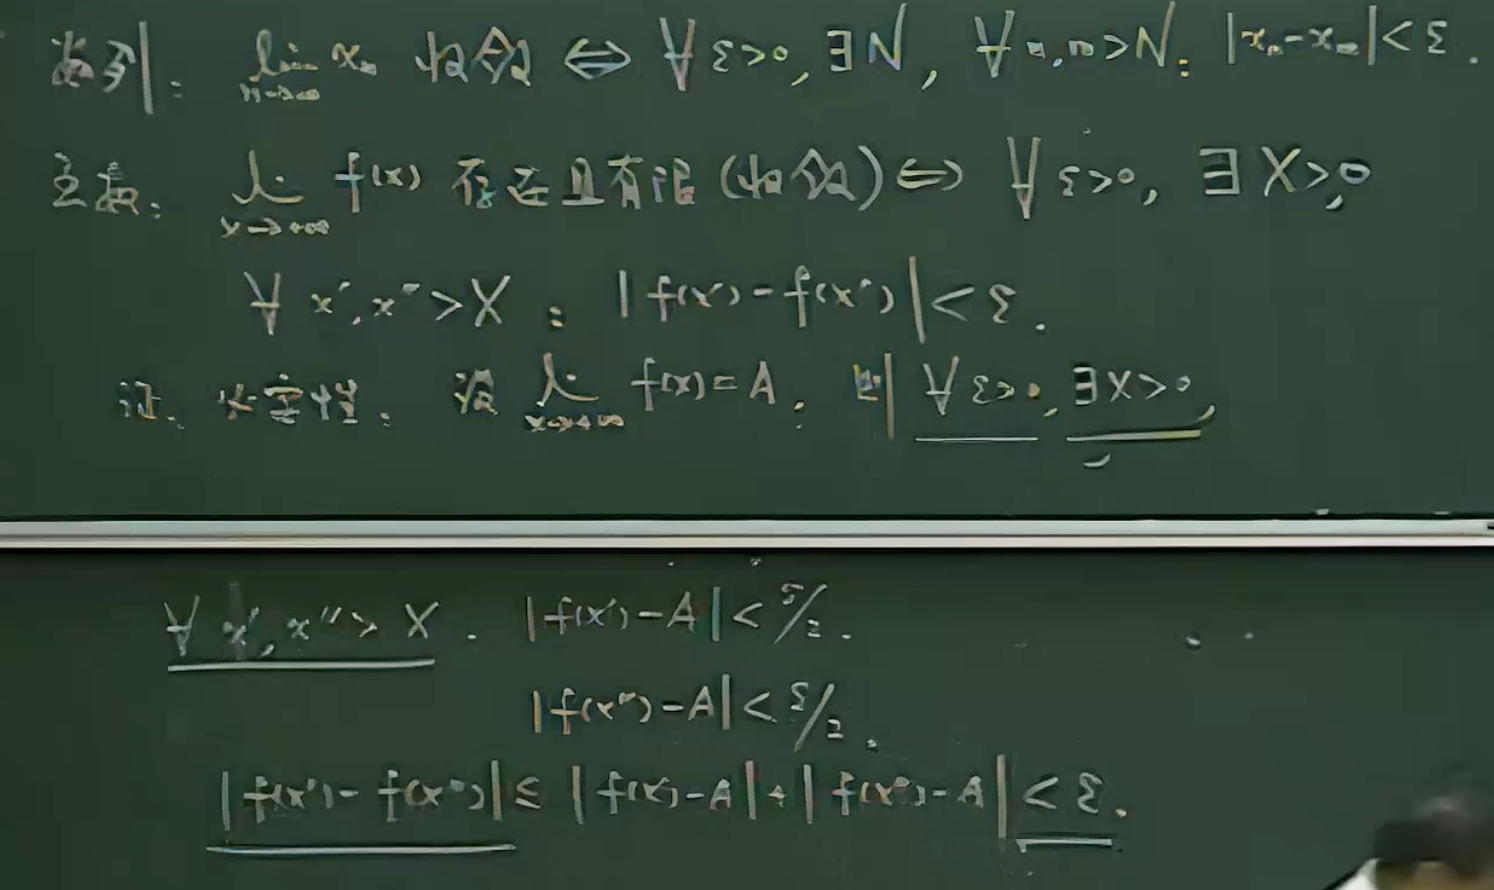 数列: lim_{n→∞} x_n 收敛 ⇔ ∀ ε>0, ∃N, ∀ m,n>N: |x_n-x_m|<ε.
lim_{x→+∞} f(x) 存在且有限(收敛)⇔ ∀ ε>0, ∃ X>0,
∀ x',x''>X: |f(x')-f(x'')|<ε.
证. 必要性. 设 lim_{x→+∞} f(x)=A. 则 ∀ ε>0, ∃X>0,
∀ x',x''>X. |f(x')-A|<ε/2.
|f(x'')-A|<ε/2.
|f(x')-f(x'')|≤|f(x')-A|+|f(x'')-A|<ε.